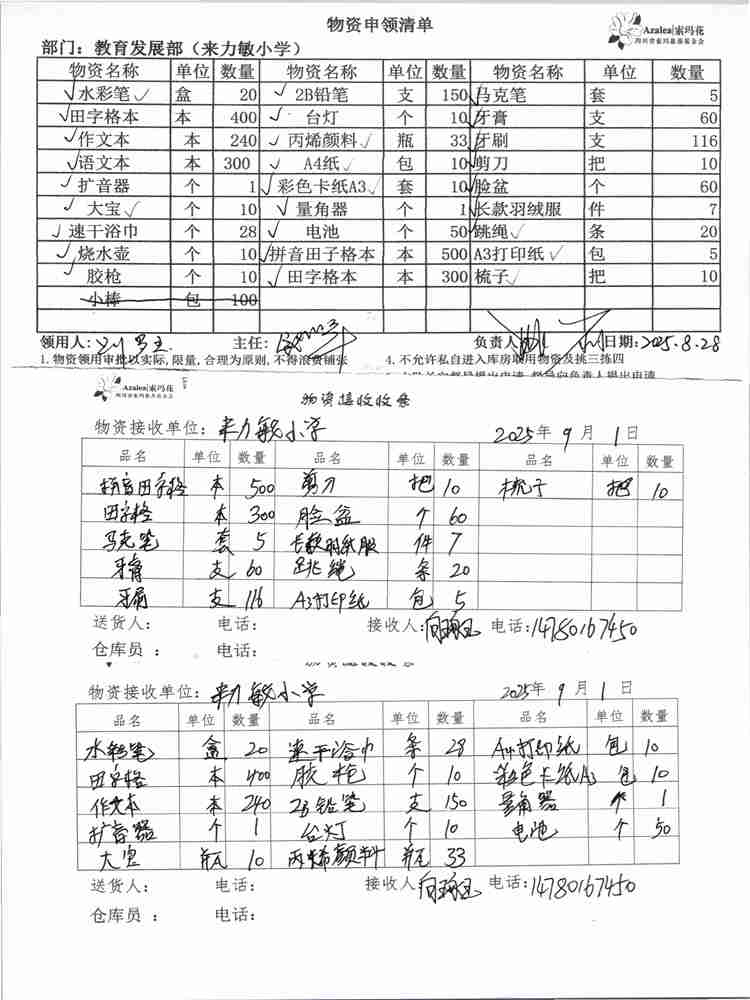 物资申领清单
Azalea|索玛花
四川省索玛慈善基金会
部门：教育发展部（来力敏小学）
物资名称 单位 数量 物资名称 单位 数量 物资名称 单位 数量
√水彩笔√ 盒 20 √ 2B铅笔 支 150 √马克笔 套 5
√田字格本 本 400 √ 台灯 个 10 √牙膏 支 60
√作文本 本 240 √丙烯颜料√ 瓶 33 √牙刷 支 116
√语文本 本 300 √ A4纸√ 包 10 √剪刀 把 10
√扩音器 个 1 √彩色卡纸A3√ 套 10 √脸盆 个 60
√大宝√ 个 10 √量角器 个 1 √长款羽绒服 件 7
√速干浴巾 个 28 √电池 个 50 √跳绳√ 条 20
√烧水壶 个 10 √拼音田子格本 本 500 A3打印纸√ 包 5
√胶枪 个 10 √田字格本 本 300 梳子√ 把 10
小棒 包 100
领用人： 主任： 负责人 日期：2025.8.28
1.物资领用审批以实际,限量,合理为原则,不得浪费铺张 4.不允许私自进入库房取用物资及挑三拣四
Azalea|索玛花
四川省索玛慈善基金会
物资接收收条
物资接收单位：来力敏小学 2025年 9月 1日
品名 单位 数量 品名 单位 数量 品名 单位 数量
拼音田字格 本 500 剪刀 把 10 梳子 把 10
田字格 本 300 脸盆 个 60
马克笔 套 5 长款羽绒服 件 7
牙膏 支 60 跳绳 条 20
牙刷 支 116 A3打印纸 包 5
送货人： 电话： 接收人： 电话：14780167450
仓库员： 电话：
物资接收单位：来力敏小学 2025年 9月 1日
品名 单位 数量 品名 单位 数量 品名 单位 数量
水彩笔 盒 20 速干浴巾 条 28 A4打印纸 包 10
田字格 本 400 胶枪 个 10 彩色卡纸A3 包 10
作文本 本 240 2B铅笔 支 150 量角器 个 1
扩音器 个 1 台灯 个 10 电池 个 50
大宝 瓶 10 丙烯颜料 瓶 33
送货人： 电话： 接收人 电话：14780167450
仓库员： 电话：